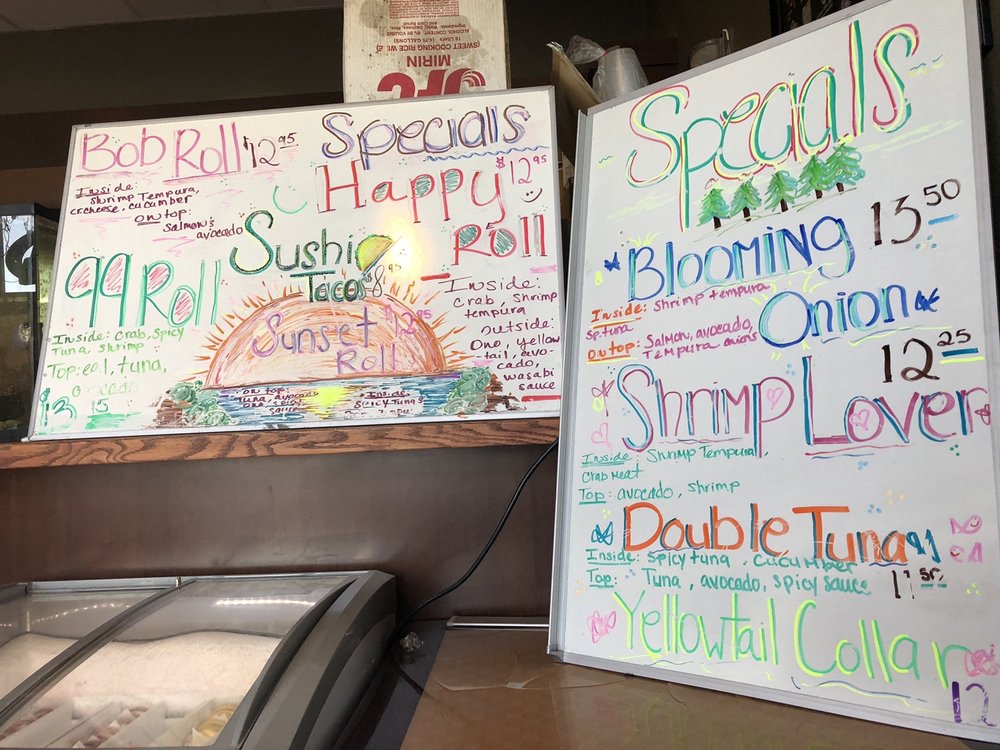 (SWEET COOKING RICE WINE)
MIRIN
JFC
Bob Roll $12.95
Inside:
Shrimp Tempura,
crcheese, cucumber
on top:
Salmon,
avocado
Specials
Happy
$12.95
Roll
Inside:
crab, shrimp
tempura
outside:
Ono, yellow
tail, avo-
cado,
wasabi
sauce
Sushi
Tacos
99 Roll
Inside: Crab, spicy
Tuna, shrimp
Top: eel, tuna,
avocado
$13
Sunset $12.95
Roll
on top:
Tuna, avocado
sauce
Inside:
Spicy Tuna
Specials
Blooming 13.50
Inside: shrimp tempura
sp.tuna
Onion
On top: Salmon, avocado,
Tempura onions
12.25
Shrimp Lover
Inside: Shrimp Tempura,
Crab meat
Top: avocado, shrimp
Double Tuna
Inside: spicy tuna, cucumber
Top: Tuna, avocado, spicy sauce
11.50
Yellowtail Collar
12